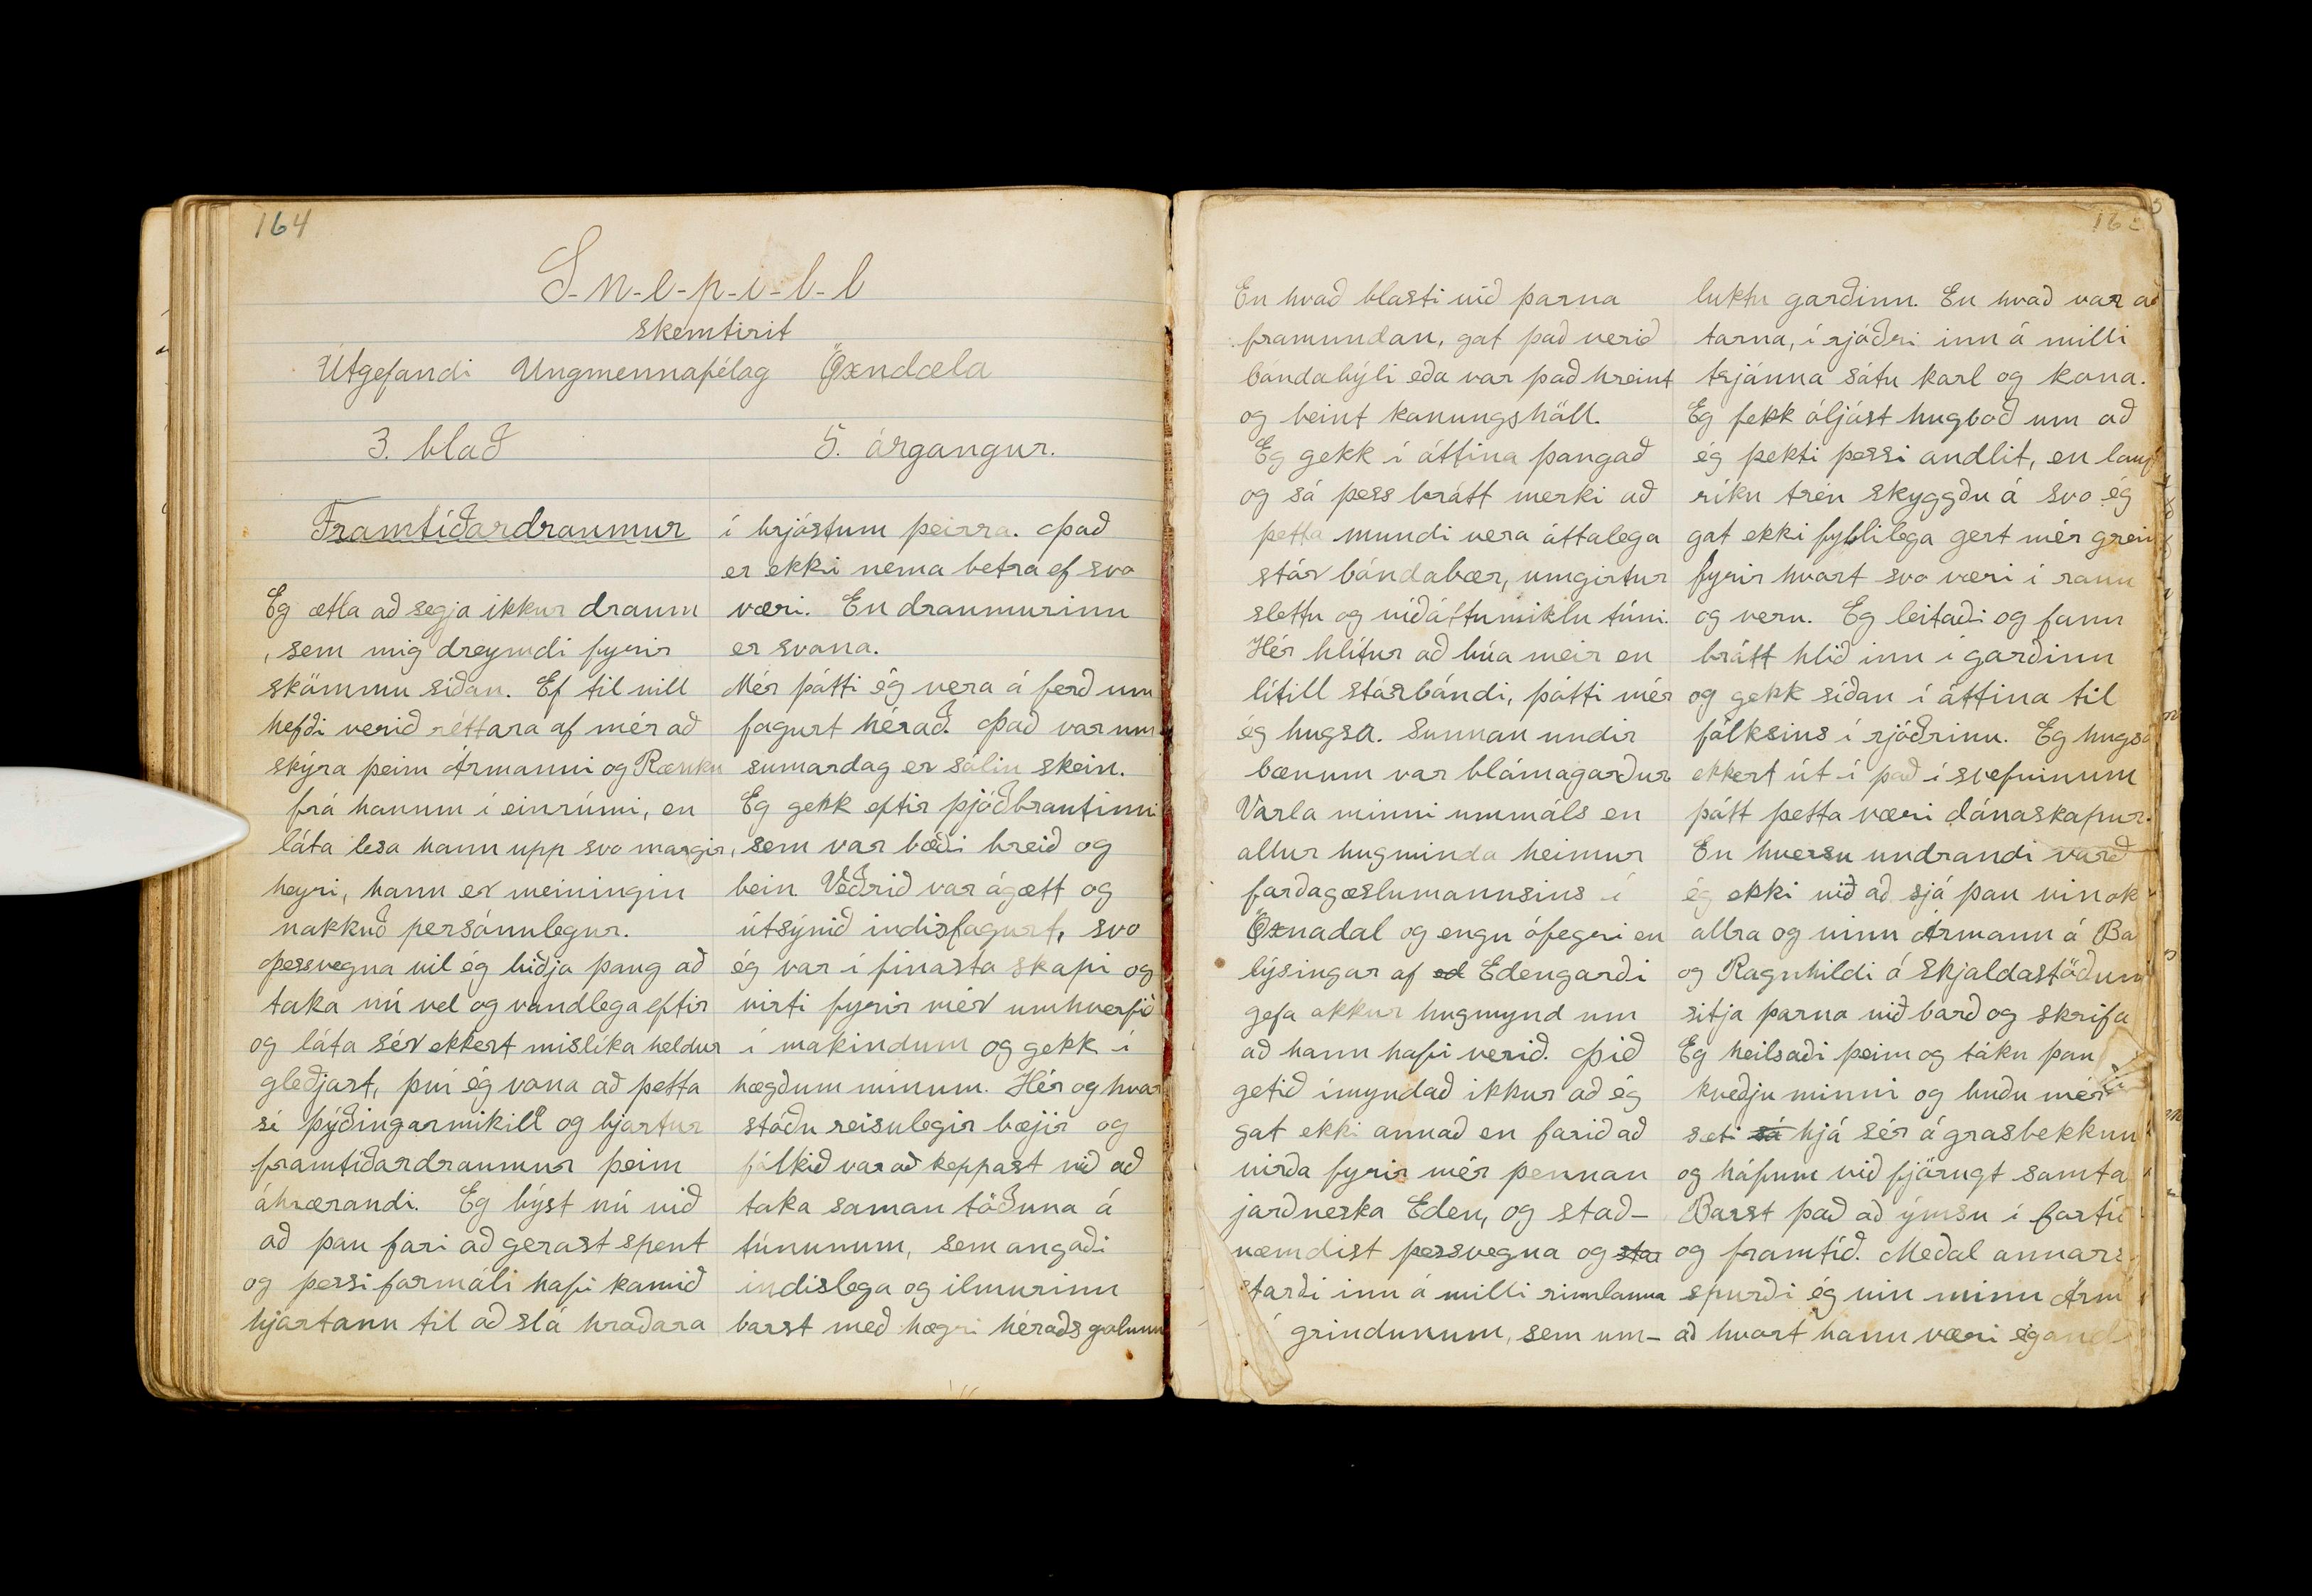 164
S-n-e-p-i-l-l
skemtirit
Útgefandi Ungmennafélag Öxndæla
3. blað 5. árgangur.
Framtíðardraumur
Eg ætla að segja ikkur draum
, sem mig dreymdi fyrir
skömmu síðan. Ef til vill
hefði verið réttara af mér að
skýra þeim Ármanni og Rænku
frá honum í einrúmi, en
láta lesa hann upp svo margir,
heyri, hann er meiningin
nokkuð persónulegur.
Þessvegna vil ég biðja þaug að
taka nú vel og vandlega eftir
og láta sér ekkert mislíka heldur
gleðjast, því ég vona að þetta
sé þýðingarmikill og bjartur
framtíðardraumur þeim
áhrærandi. Eg býst nú við
að þau fari að gerast spent
og þessi formáli hafi komið
hjörtonn til að slá hraðara
í brjóstum þeirra. Það
er ekki nema betra ef svo
væri. En draumurinn
er svona.
Mér þótti ég vera á ferð um
fagurt hérað. Það var um
sumardag er sólin skein.
Eg gekk eftir þjóðbrautinni
sem var bæði breið og
bein Veðrið var ágætt og
útsýnið indisfagurt, svo
ég var í finasta skapi og
virti fyrir mér umhverfið
í makindum og gekk í
hægðum mínum. Hér og hvar
stóðu reisulegir bæjir og
fólkið var að keppast við að
taka saman töðuna á
túnunum, sem angaði
indislega og ilmurinn
barst með hægri héraðsgolunni
165
En hvað blasti við þarna
framundan, gat það verið
bóndabýli eða var það hreint
og beint konungshöll.
Eg gekk í áttina þangað
og sá þess brátt merki að
þetta mundi vera áttalega
stór bóndabær, umgirtur
slettu og víðáttumiklu túni.
Hér hlítur að búa meir en
lítill stórbóndi, þótti mér
ég hugsa. Sunnan undir
bænum var blómagarður
Varla minni ummáls en
allur hugmynda heimur
forðagæslumannsins í
Öxnadal og engu ófegri en
lýsingar af ed Edengarði
gefa okkur hugmynd um
að hann hafi verið. Þið
getið ímyndað ikkur að ég
gat ekki annað en farið að
virða fyrir mér þennan
jarðneska Eden, og stað-
næmdist þessvegna og star
starði inn á milli rimlanna
í grindunum, sem um-
luktu garðinn. En hvað var að
tarna, í rjóðri inn á milli
trjánna sátu karl og kona.
Eg fekk óljóst hugboð um að
ég þekti þessi andlit, en lauf
ríku trén skyggðu á svo ég
gat ekki fyllilega gert mér grein
fyrir hvort svo væri í raun
og veru. Eg leitaði og fann
brátt hlið inn í garðinn
og gekk síðan í áttina til
fólksins í rjóðrinu. Eg hugsa
ekkert út í það í svefninum
þótt þetta væri dónaskapur.
En hversu undrandi varð
ég ekki við að sjá þau vin ok
allra og vinn Ármann á Ba
og Ragnhildi á Skjaldastöðum
sitja þarna við borð og skrifa
Eg heilsaði þeim og tóku þau
kveðju minni og buðu mér
sæti sá hjá sér á grasbekknu
og hófum við fjörugt samta
Barst það að ýmsu í fortí
og framtíð. Meðal annars
spurði ég vin minn Árm
að hvort hann væri eigand